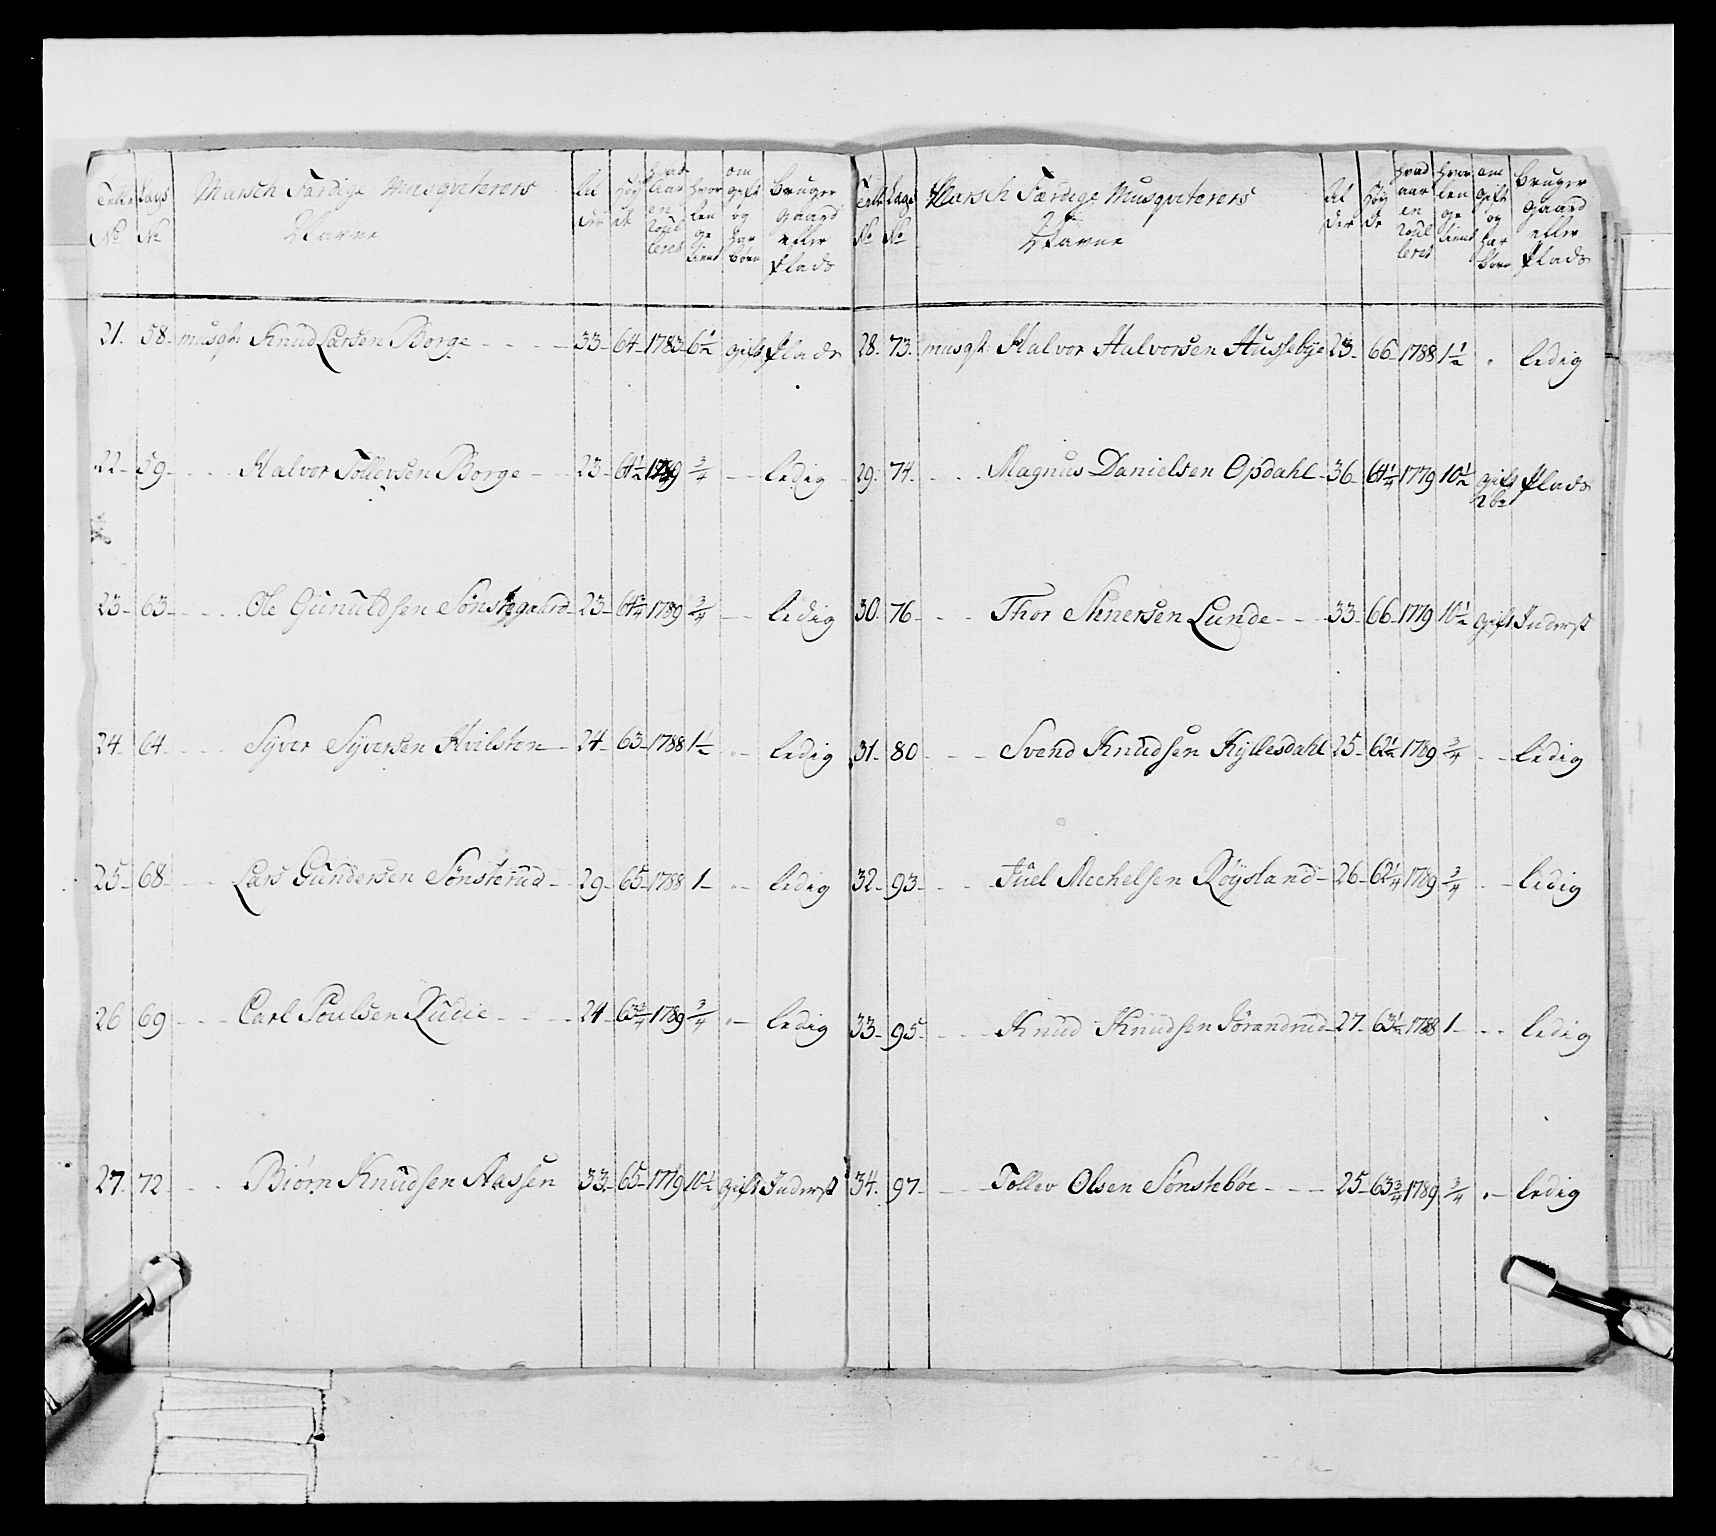 Marsch Færdige Musqveterers Navne
Telte No
Lægs No
Al der
Høy de
hvad aar en roul leret
hvor len ge tient
om gift og har børn
bruger gaard eller plads
21. 58. musqt. Knud Larsen Borge 33 64 1783 6 1/2 gift plads
22 59 Halvor Tollevsen Borge 23 64 1/2 1789 3/4 ledig
23 63 Ole Gunuldsen Sønstegaard 23 64 3/4 1789 3/4 ledig
24 64 Syver Syversen Kvilsten 24 63 1788 1 1/2 ledig
25 68 Lars Gundersen Sønsterud 29 65 1788 1 ledig
26 69 Carl Poulsen Rudie 24 63 3/4 1789 3/4 ledig
27. 72 Biørn Knudsen Aassen 33 65 1779 10 1/2 gift Inderst
Telte No
Lægs No
Marsch Færdige Musqveterers Navne
Al der
Høy de
hvad aar en roul leret
hvor len ge tient
om gift og har børn
bruger gaard eller plads
28. 73. musqt. Halvor Halvorsen Hussebye 23 66 1788 1 1/2 ledig
29. 74. Magnus Danielsen Opdahl 36 64 1/4 1779 10 1/2 gift 2 bø plads
30. 76 Thor Stenersen Lunde 33 66 1779 10 1/2 gift Inderst
31 80 Svend Knudsen Kyllesdahl 25 62 1/2 1789 3/4 ledig
32 93 Juel Mechelsen Røysland 26 62 1/4 1789 3/4 ledig
33 95 Knud Knudsen Jørandrud 27 63 1/2 1788 1 ledig
34. 97 Tollev Olsen Sønstebøe 25 63 3/4 1789 3/4 ledig